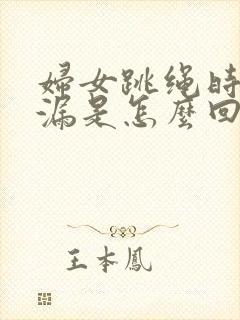 婦女跳绳时
漏是怎麼回
王本鳳